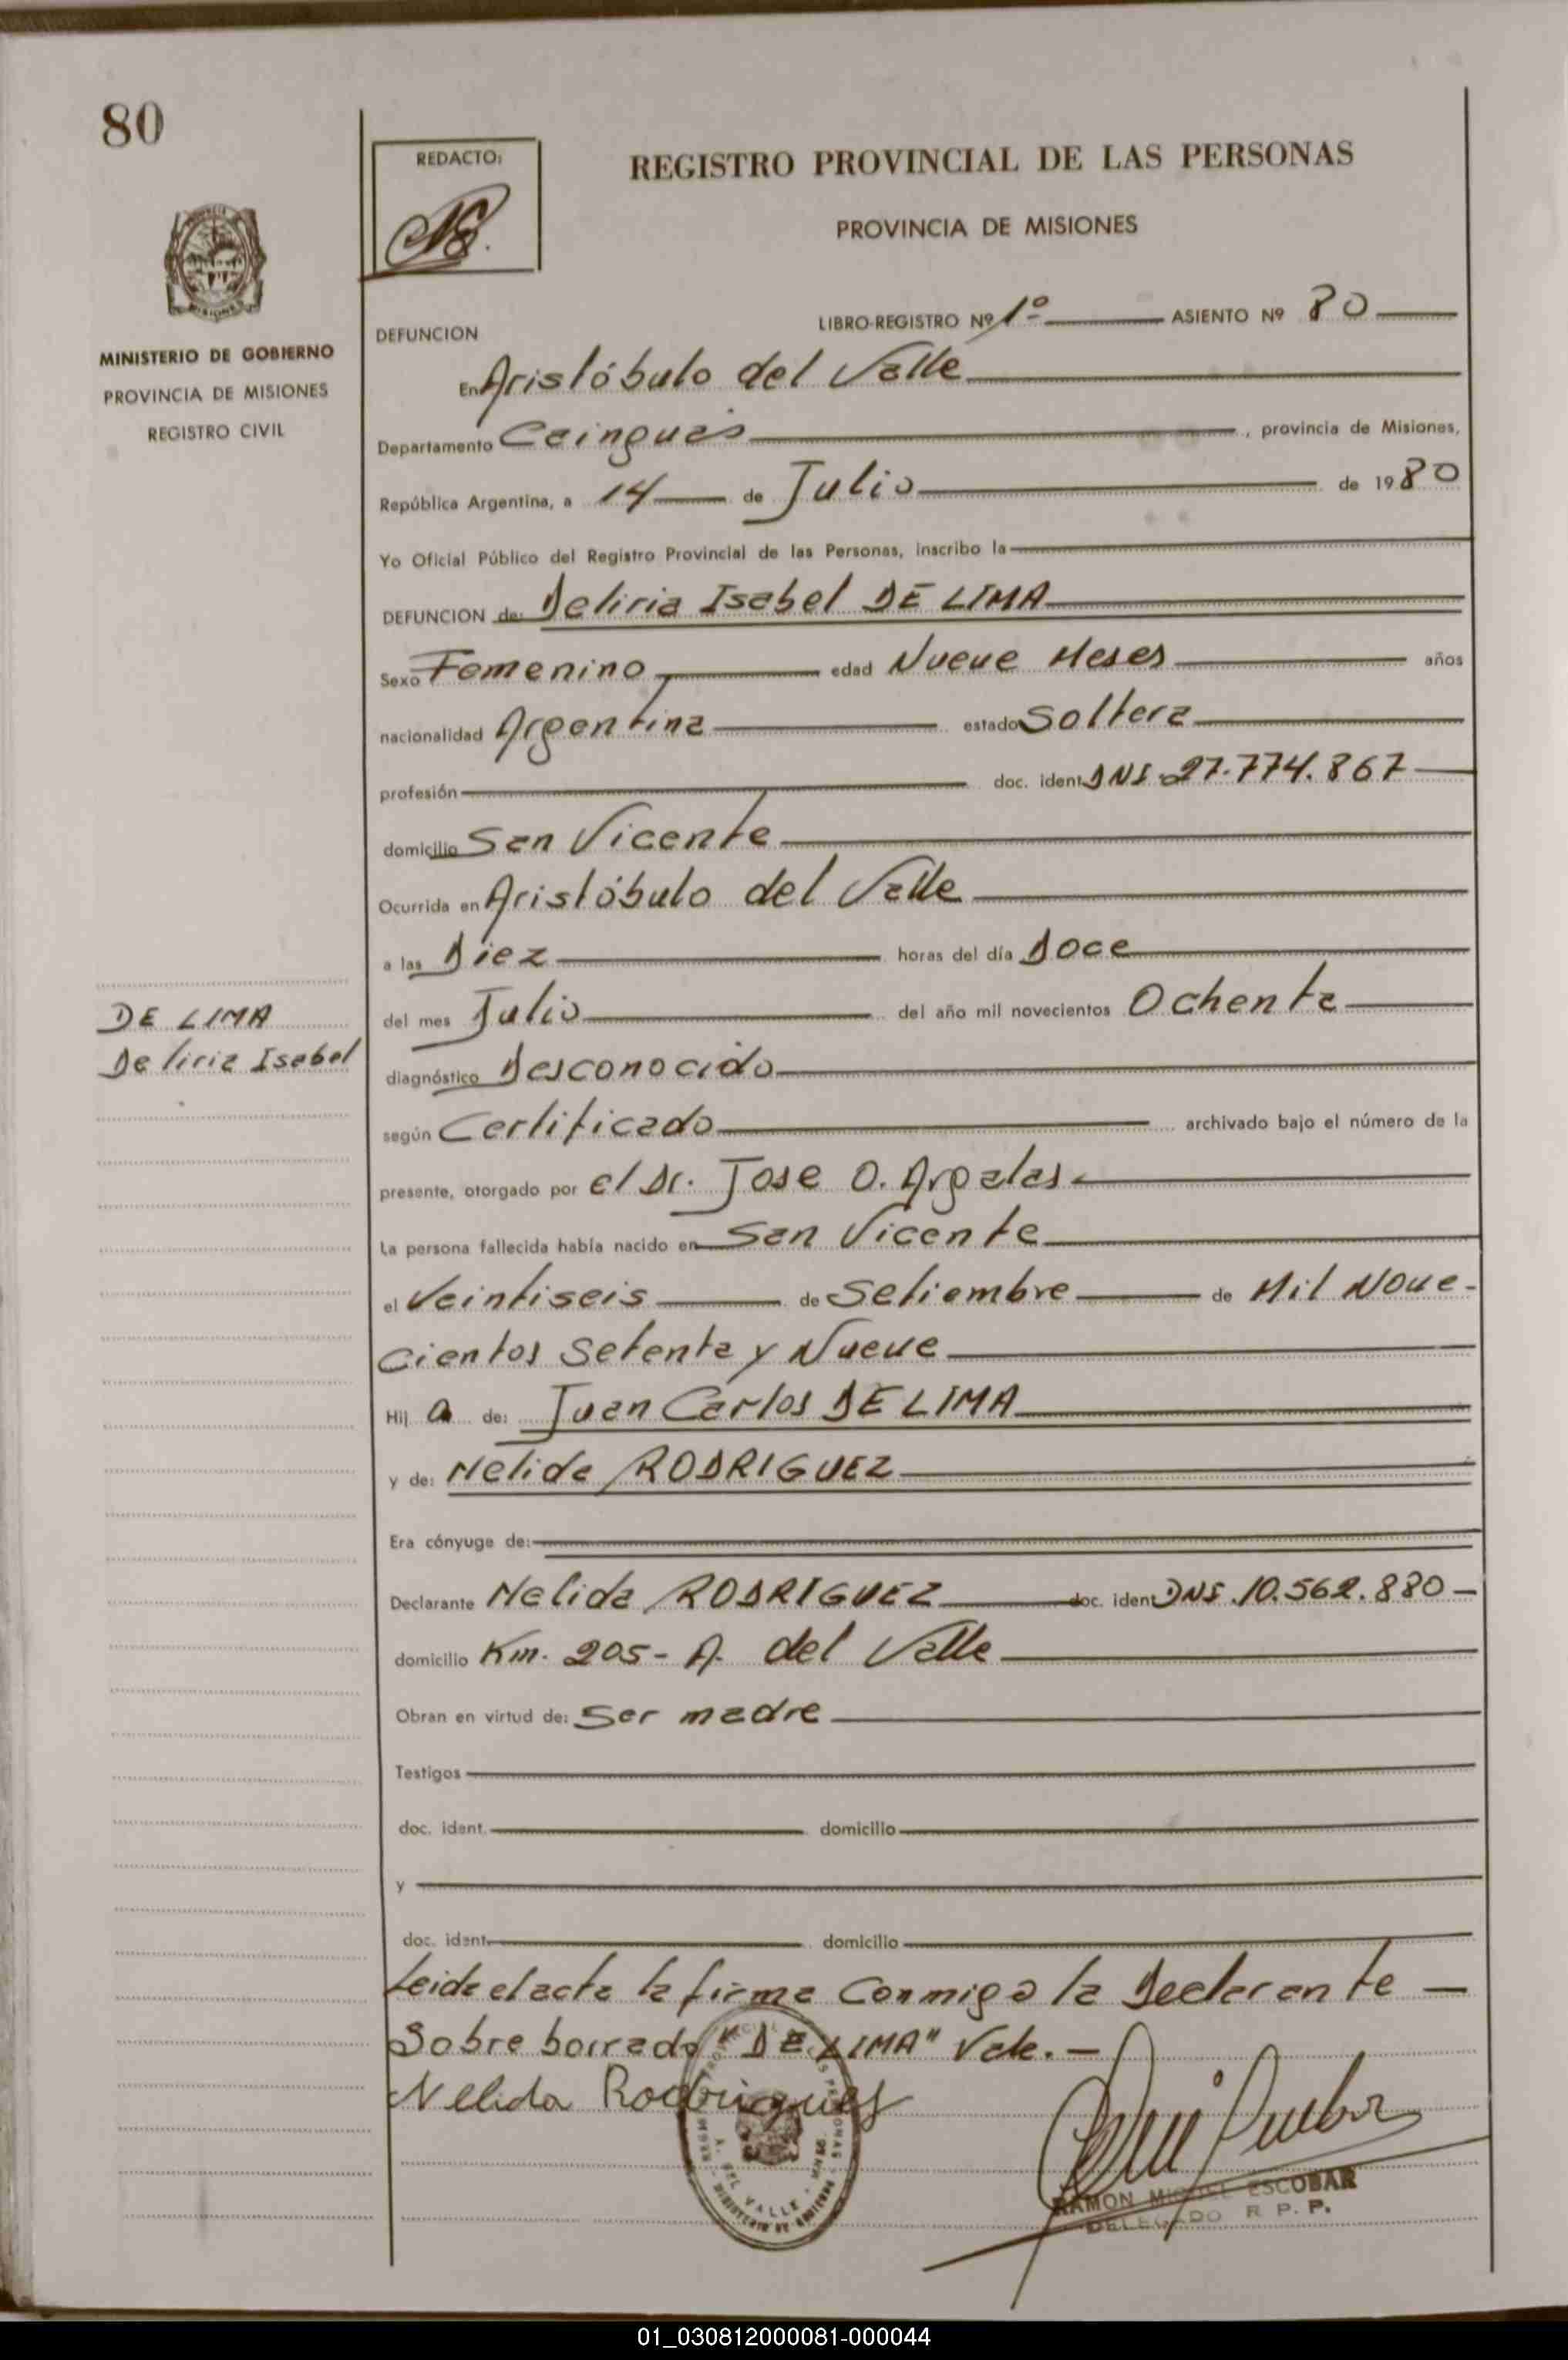 80
REDACTO:
REGISTRO PROVINCIAL DE LAS PERSONAS
PROVINCIA DE MISIONES
MINISTERIO DE GOBIERNO
PROVINCIA DE MISIONES
REGISTRO CIVIL
LIBRO-REGISTRO Nº 1º ASIENTO Nº 80
DEFUNCION
En Aristóbulo del Valle
Departamento Cainguás, provincia de Misiones,
República Argentina, a 14 de Julio de 1980
Yo Oficial Público del Registro Provincial de las Personas, inscribo la
DEFUNCION de: Deliria Isabel DE LIMA
Sexo Femenino edad Nueve Meses años
nacionalidad Argentina estado Soltera
profesión doc. ident. DNI. 27.774.867
domicilio San Vicente
Ocurrida en Aristóbulo del Valle
a las Diez horas del día Doce
del mes Julio del año mil novecientos Ochenta
DE LIMA
Deliria Isabel
diagnóstico Desconocido
según Certificado archivado bajo el número de la
presente, otorgado por el Dr. Jose O. Argalas
La persona fallecida había nacido en San Vicente
el Veintiseis de Setiembre de Mil Nove-
cientos Setenta y Nueve
Hij a de: Juan Carlos DE LIMA
y de: Nelida RODRIGUEZ
Era cónyuge de:
Declarante Nelida RODRIGUEZ doc. ident DNI. 10.562.880
domicilio Km. 205- A. del Valle
Obran en virtud de: Ser madre
Testigos
doc. ident. domicilio
y
doc. ident. domicilio
Leida el acta la firma Conmigo la Declarante —
Sobre borrado "DE LIMA" Vale. —
Nelida Rodriguez
A. DEL VALLE - MNES.
MINISTERIO DE GOBIERNO
RAMON MIGUEL ESCOBAR
DELEGADO R. P. P.
01_030812000081-000044